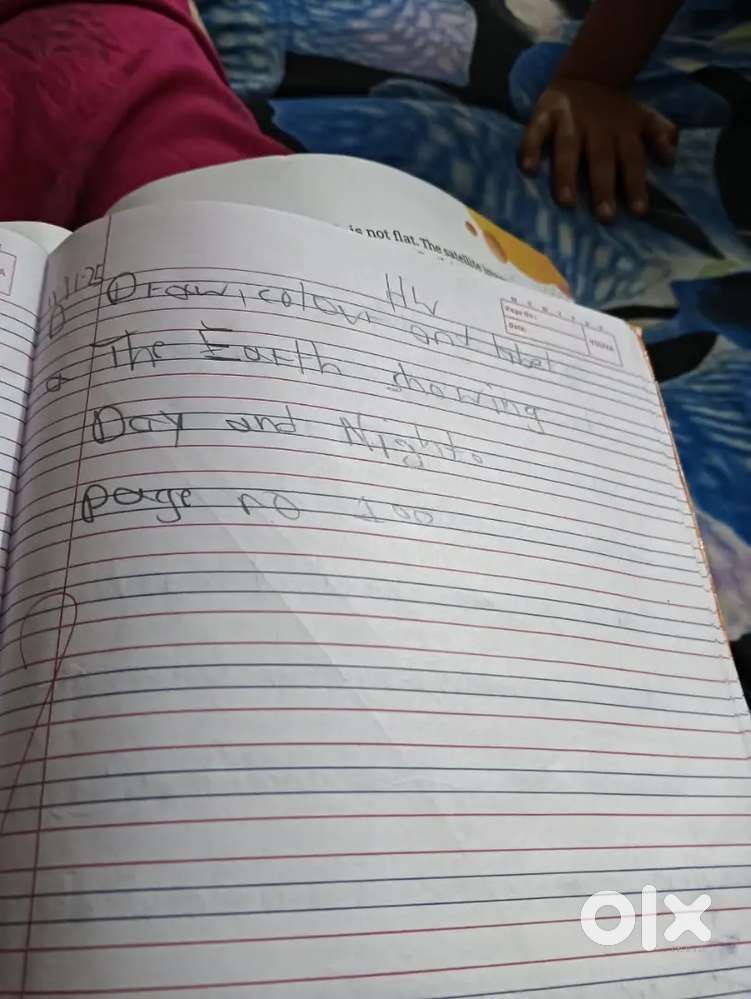 is not flat. The satellite
HW
Page No.:
Date:
YOUVA
11.11.25
Draw, colour and label
The Earth showing
Day and Night.
Page no 100
olx